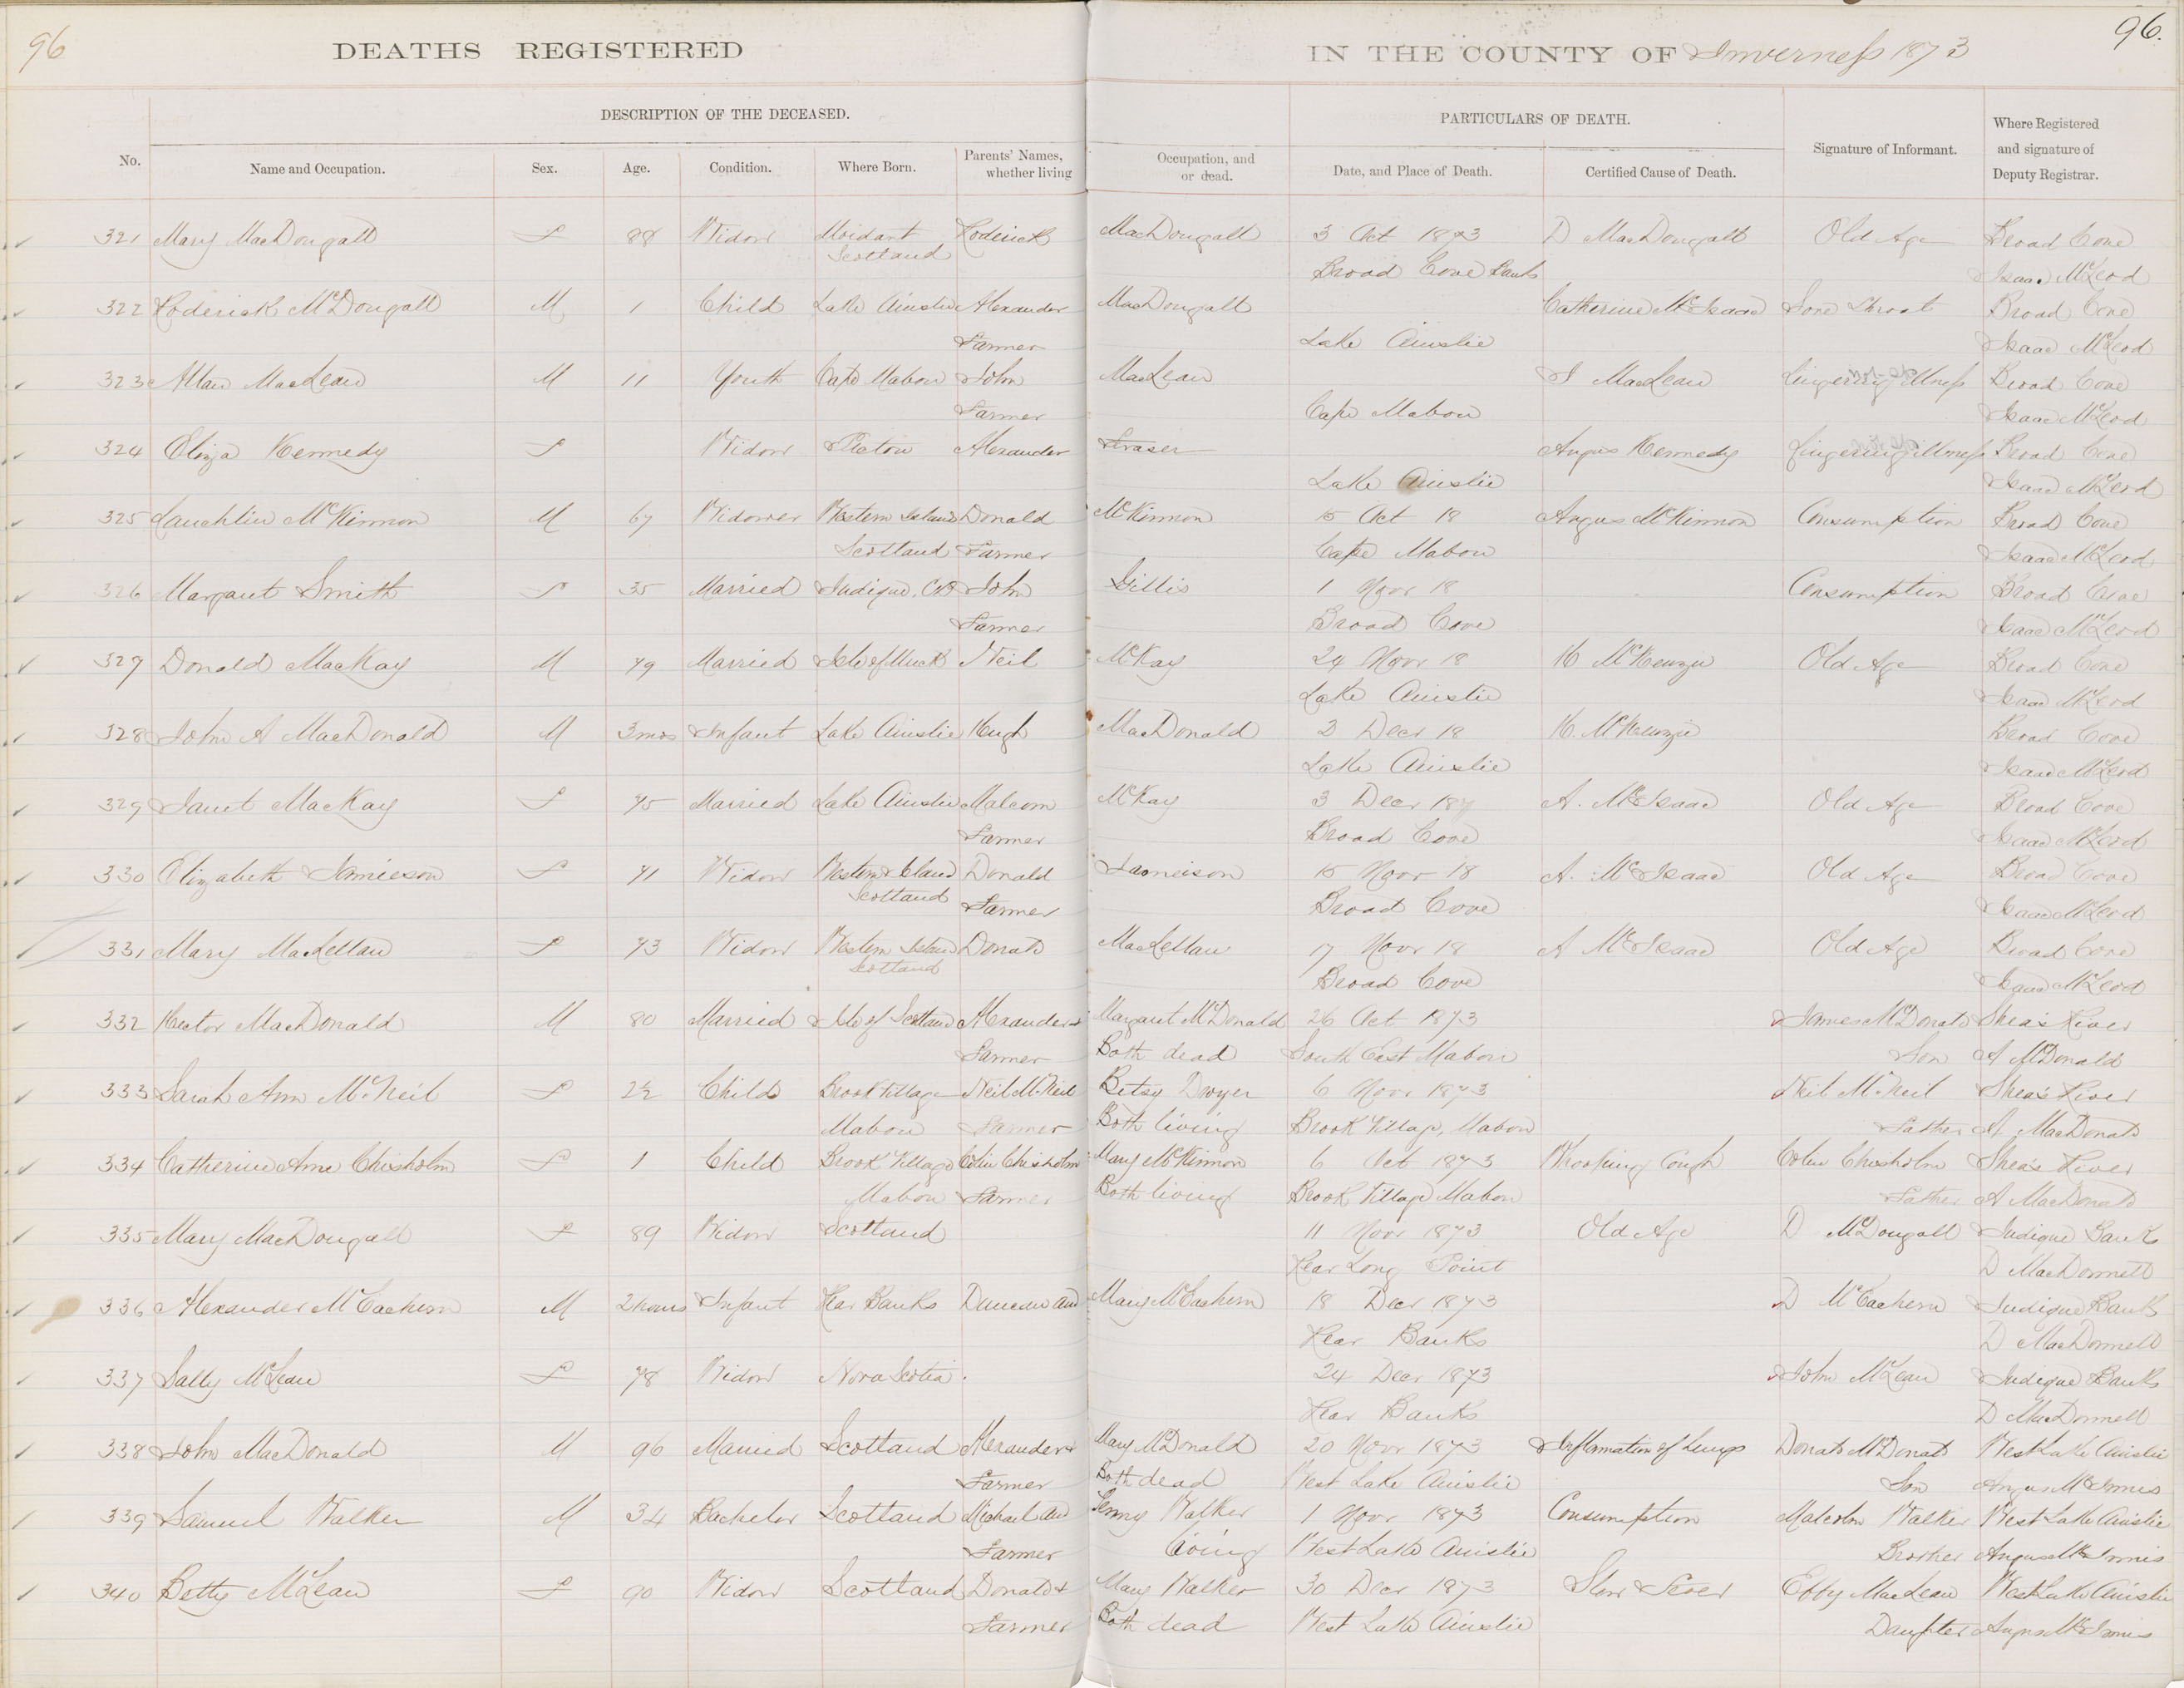 96
DEATHS REGISTERED IN THE COUNTY OF Inverness 1873 96.
DESCRIPTION OF THE DECEASED. PARTICULARS OF DEATH.
No. Name and Occupation. Sex. Age. Condition. Where Born. Parents' Names, whether living Occupation, and or dead. Date, and Place of Death. Certified Cause of Death. Signature of Informant. Where Registered and signature of Deputy Registrar.
321 Mary MacDougall f 88 Widow Moidart Roderick MacDougall 3 Oct 1873 D MacDougall Old Age Broad Cove
Scotland Broad Cove Banks Isaac McLeod
322 Roderick McDougall M 1 Child Lake Ainslie Alexander MacDougall Catherine McIsaac Sore Throat Broad Cove
Farmer Lake Ainslie Isaac McLeod
323 Allan MacLean M 11 Youth Cape Mabou John MacLean J MacLean Lingering Illness Broad Cove
Farmer Cape Mabou Isaac McLeod
324 Eliza Kennedy f Widow Pictou Alexander Fraser Angus Kennedy Lingering Illness Broad Cove
Lake Ainslie Isaac McLeod
325 Lauchlin McKinnon M 67 Widower Western Islands Donald McKinnon 15 Oct 18 Angus McKinnon Consumption Broad Cove
Scotland Farmer Cape Mabou Isaac McLeod
326 Margaret Smith f 35 Married Judique, CB John Gillis 1 Novr 18 Consumption Broad Cove
Farmer Broad Cove Isaac McLeod
327 Donald MacKay M 79 Married Isle of Muck Neil McKay 24 Novr 18 K McKenzie Old Age Broad Cove
Lake Ainslie Isaac McLeod
328 John A MacDonald M 3 mos Infant Lake Ainslie Hugh MacDonald 3 Decr 18 K. McKenzie Broad Cove
Lake Ainslie Isaac McLeod
329 Janet MacKay f 75 Married Lake Ainslie Malcom McKay 3 Decr 187 A. McIsaac Old Age Broad Cove
Farmer Broad Cove Isaac McLeod
330 Elizabeth Jamieson f 71 Widow Western Island Donald Jameison 15 Novr 18 A. McIsaac Old Age Broad Cove
Scotland Farmer Broad Cove Isaac McLeod
331 Mary MacLellan f 73 Widow Western Island Donald MacLellan 17 Novr 18 A McIsaac Old Age Broad Cove
Scotland Broad Cove Isaac McLeod
332 Hector MacDonald M 80 Married Isle of Scotland Alexander + Margaret McDonald 26 Oct 1873 James McDonald Shea's River
Farmer Both dead South East Mabou Son A McDonald
333 Sarah Ann McNeil f 2½ Child Brook Village Neil McNeil Betsy Dwyer 6 Novr 1873 Neil McNeil Shea's River
Mabou Farmer Both living Brook Village, Mabou Father A MacDonald
334 Catherine Ann Chisholm f 1 Child Brook Village Colin Chisholm Mary McKinnon 6 Oct 1873 Whooping Cough Colin Chisholm Shea's River
Mabou Farmer Both living Brook Village Mabou Father A MacDonald
335 Mary MacDougall f 89 Widow Scotland 11 Novr 1873 Old Age D McDougall Judique Bank
Rear Long Point D MacDonnell
336 Alexander McEachern M 2 hours Infant Rear Banks Duncan and Mary McEachern 18 Decr 1873 D McEachern Judique Banks
Rear Banks D MacDonnell
337 Sally McLean f 78 Widow Nova Scotia 24 Decr 1873 John McLean Judique Banks
Rear Banks D MacDonnell
338 John MacDonald M 96 Married Scotland Alexander + Mary McDonald 20 Novr 1873 Inflamation of Lungs Donald McDonald West Lake Ainslie
Farmer Both dead West Lake Ainslie Son Angus McInnis
339 Samuel Walker M 34 Bachelor Scotland Michael and Jenny Walker 1 Novr 1873 Consumption Malcolm Walker West Lake Ainslie
Farmer living West Lake Ainslie Brother Angus McInnis
340 Betty McLean f 90 Widow Scotland Donald + Mary Walker 30 Decr 1873 Slow Fever Effy MacLean West Lake Ainslie
Farmer Both dead West Lake Ainslie Daughter Angus McInnis